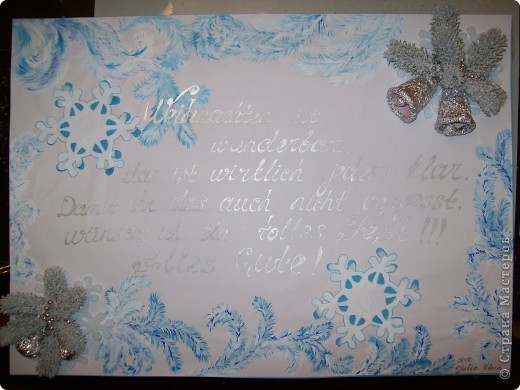 Weihnachten ist
wunderbar,
das ist wirklich jedem klar.
Damit du das auch nicht vergisst.
wünsch ich dir tolles Fest!!!
Alles Gute!
© Страна Мастеров